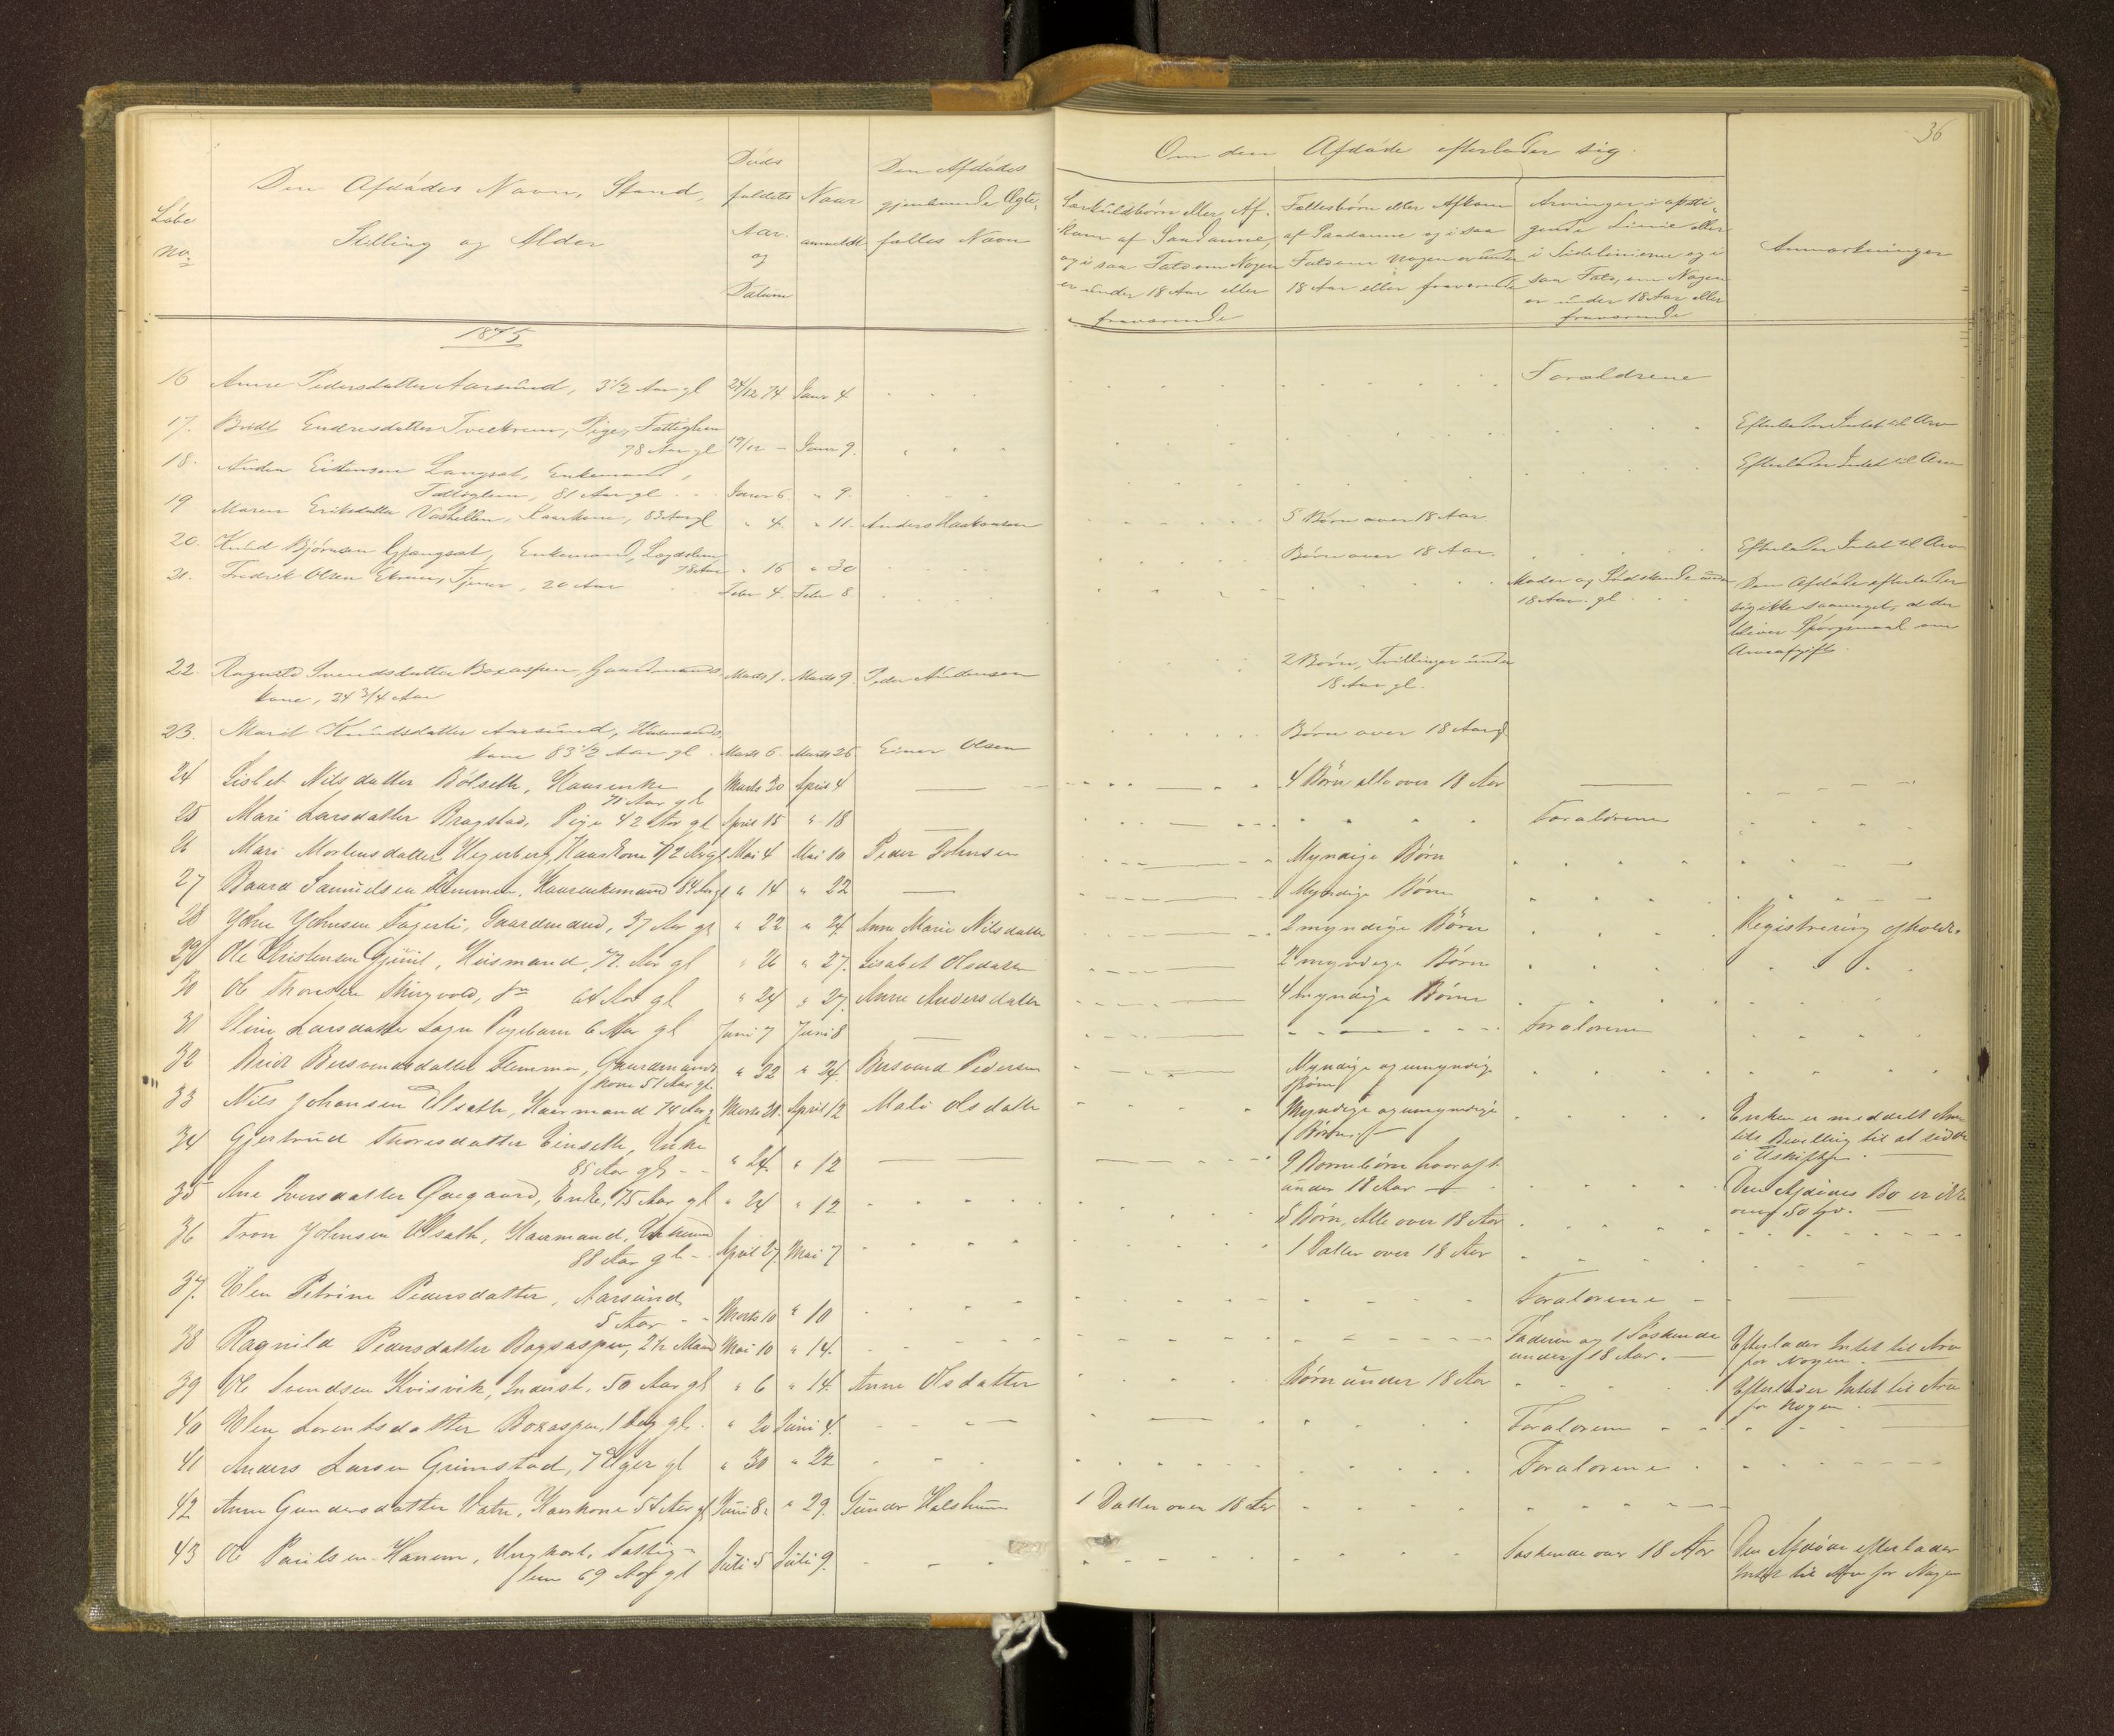 36
Om den Afdøde efterlader sig.
Løbe No. Den Afdødes Navn, Stand, Stilling og Alder
Dødsfaldets Aar og Datum
Naar anmeldt
Den Afdødes gjenlevende Ægtefælles Navn
Særkuldbørn eller Afkom af Saadanne, og i saa Fald om Nogen er under 18 Aar eller fraværende
Fællesbørn eller Afkom af Saadanne og i saa Fald om Nogen er under 18 Aar eller fraværende
Arvinger i opstigende Linie eller i Sidelinierne og i saa Fald, om Nogen er under 18 Aar eller fraværende
Anmærkninger
1875
16 Anne Pedersdatter Aarsund, 3 1/2 Aar gl 24/12 74 Janr 4 Forældrene
17. Endresdatter Pige, Fattiglem
78 Aar gl 17/12 - Janr 9. Efterlader Intet til Arv
18. Langsæt, Enkemand,
Fattiglem, 81 Aar gl Janr 6. " 9. Efterlader Intet til Arv
19 Maren Eriksdatter Kaarkone, 83 Aar gl " 4. " 11. Anders Haakonsen 5 Børn over 18 Aar.
20. Knud Bjørnsen Gjengsæt, Enkemand, Lægdslem
78 Aar " 16 " 30 Børn over 18 Aar. Efterlader Intet til Arv
21. Fredrik Olsen Tjener, 20 Aar Febr 4. Febr 8 Moder og Sødskende under
18 Aar gl
Den Afdøde efterlader
sig ikke saameget, at der
bliver Spørgsmaal om
Arveafgift.
22. Ragnild Svendsdatter Boxaspen, Gaardmands
kone, 24 3/4 Aar Marts 1. Marts 9. Peder Andersen 2 Børn, Tvillinger under
18 Aar gl.
23. Marit Knudsdatter Aarsund, Husmands
kone 83 1/2 Aar gl. Marts 6. Marts 26. Einer Olsen Børn over 18 Aar gl
24 Lisbet Nilsdatter Bølseth, Kaarenke
Aar gl Marts 20 April 4 4 Børn alle over 18 Aar
25 Mari Larsdatter Bragstad, Pige 42 Aar gl April 15 " 18 Forældrene
26 Mari Mortensdatter Hegerberg, Kaarkone 72 Aar gl Mai 4 Mai 10 Peder Johnsen Myndige Børn
27 Baard Samuelsen Flemmen, Kaarenkemand 84 Aar gl " 14 " 22 Myndige Børn
28 John Johnsen Fagerli, Gaardmand, 37 Aar gl " 22 " 24. Anne Marie Nilsdatter 2 myndige Børn Registrering afholdt.
29 Ole Christensen Husmand, 77. Aar gl " 26 " 27. Lisabet Olsdatter 2 myndige Børn
30 Ole 64 Aar gl " 24 " 27. Anne Andersdatter 4 myndige Børn
31 Larsdatter Pigebarn 6 Aar gl Juni 7 Juni 8 Forældrene
32 Berit Bersvendsdatter Flemmen, Gaardmands
kone 51 Aar gl. " 22 " 24. Bersvend Pedersen Myndige og umyndige
Børn
33 Nils Johansen Ulseth, Kaarmand 74 Aar gl Marts 31. April 12 Mali Olsdatter Myndige og umyndige
Børn
Enken er meddelt
Bevilling til at sidde
i Uskifte.
34 Gjertrud Thoresdatter Einseth, Enke
85 Aar gl - - " 24. " 12 9 Børnebørn hvoraf 1.
under 18 Aar
35 Ane Iversdatter Øvegaard, Enke, 75 Aar gl " 24 " 12 5 Børn, Alle over 18 Aar
Den Afdødes Bo er ikke
over 50
36 Tron Johnsen Ulseth, Kaarmand, Enkemand
88 Aar gl - April 27. Mai 7 1 Datter over 18 Aar
37. Elen Petrine Pedersdatter, Aarsund
5 Aar - - Marts 10 " 10 Forældrene
38 Ragnild Pedersdatter Boxaspen, 2 1/2 Maaned Mai 10 " 14. Faderen og 1 Søskende
under 18 Aar.
Efterlader Intet til Arv
for Nogen.
39 Ole Svendsen Kvisvik, Inderst, 50 Aar gl " 6 " 14. Anne Olsdatter Børn under 18 Aar
Efterlader Intet til Arv
for Nogen.
40 Elen Lorentsdatter Boxaspen, 1 Dag gl. " 20 Juni 4. Forældrene
41 Anders Larsen Grimstad, 7 Uger gl " 30 " 22 Forældrene
42 Anne Gundersdatter Vatn, Kaarkone 54 Aar gl Juni 8. " 29. 1 Datter over 18 Aar
43 Ole Paulsen Hanem, Ungkarl, Fattig-
lem 69 Aar gl Juli 5 Juli 9. Søskende over 18 Aar Den Afdøde efterlader
Intet til Arv for Nogen